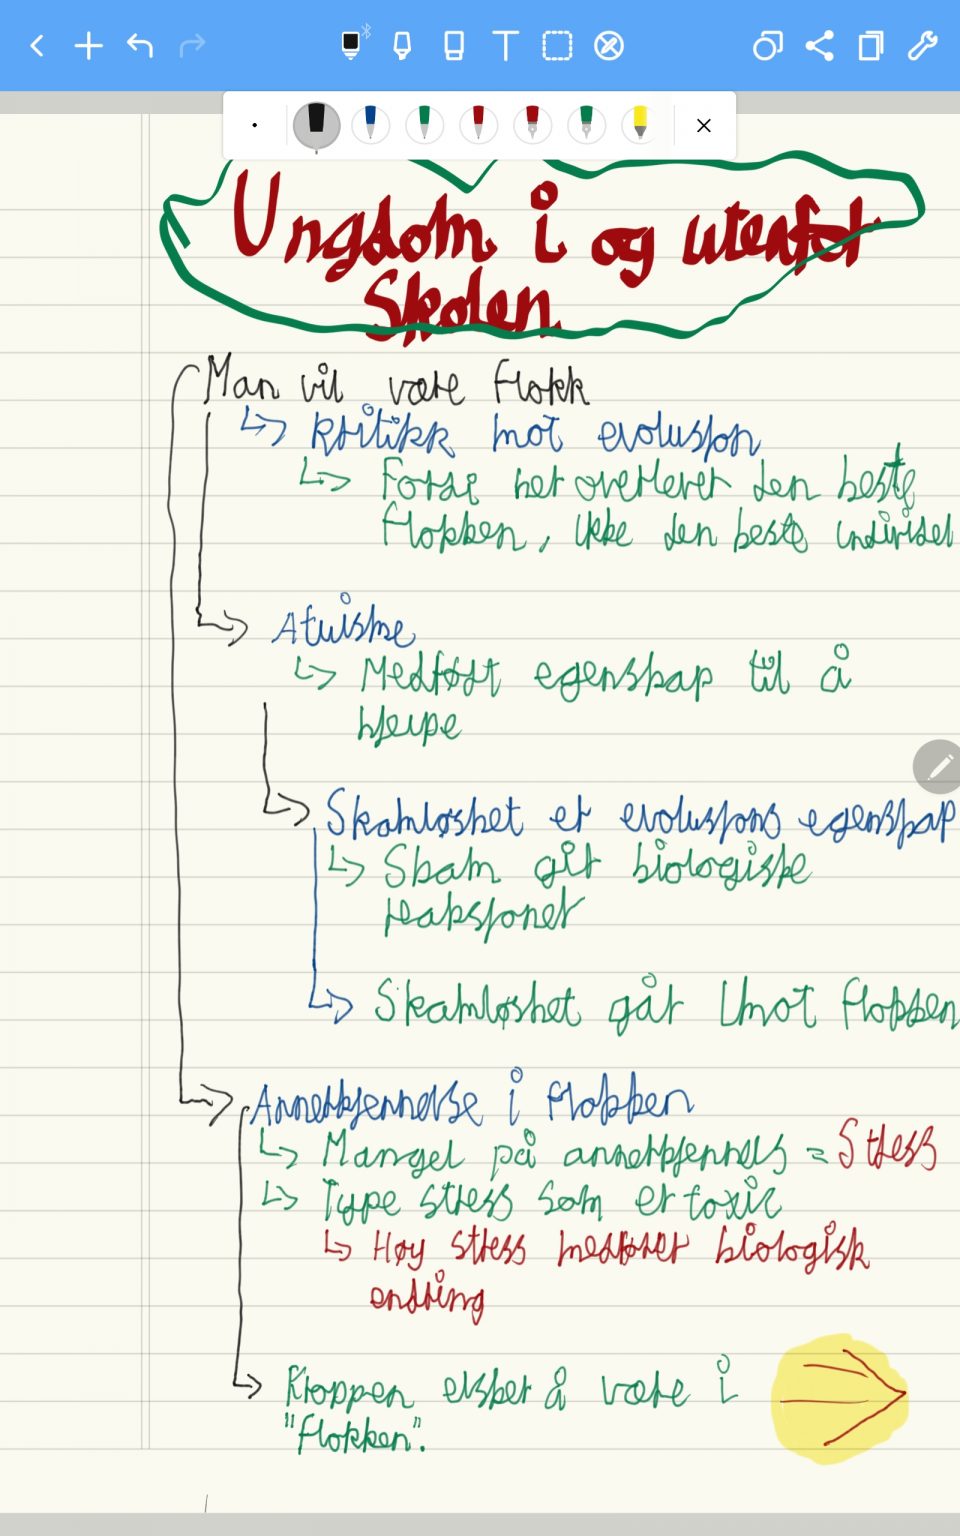 Ungdom i og utenfor
Skolen
Man vil være flokk
Kritikk mot evolusjon
Forsj her overlever den beste
flokken, ikke den beste individet
Atuisme
Medfødt egenskap til å
hjelpe
Skamløshet er evolusjons egenskap
Skam gir biologiske
reaksjoner
Skamløshet går imot flokken
Annerkjennelse i flokken
Mangel på annerkjennels = Stress
Type stress som er toxic
Høy stress medfører biologisk
endring
Kroppen elsker å være i
"flokken".